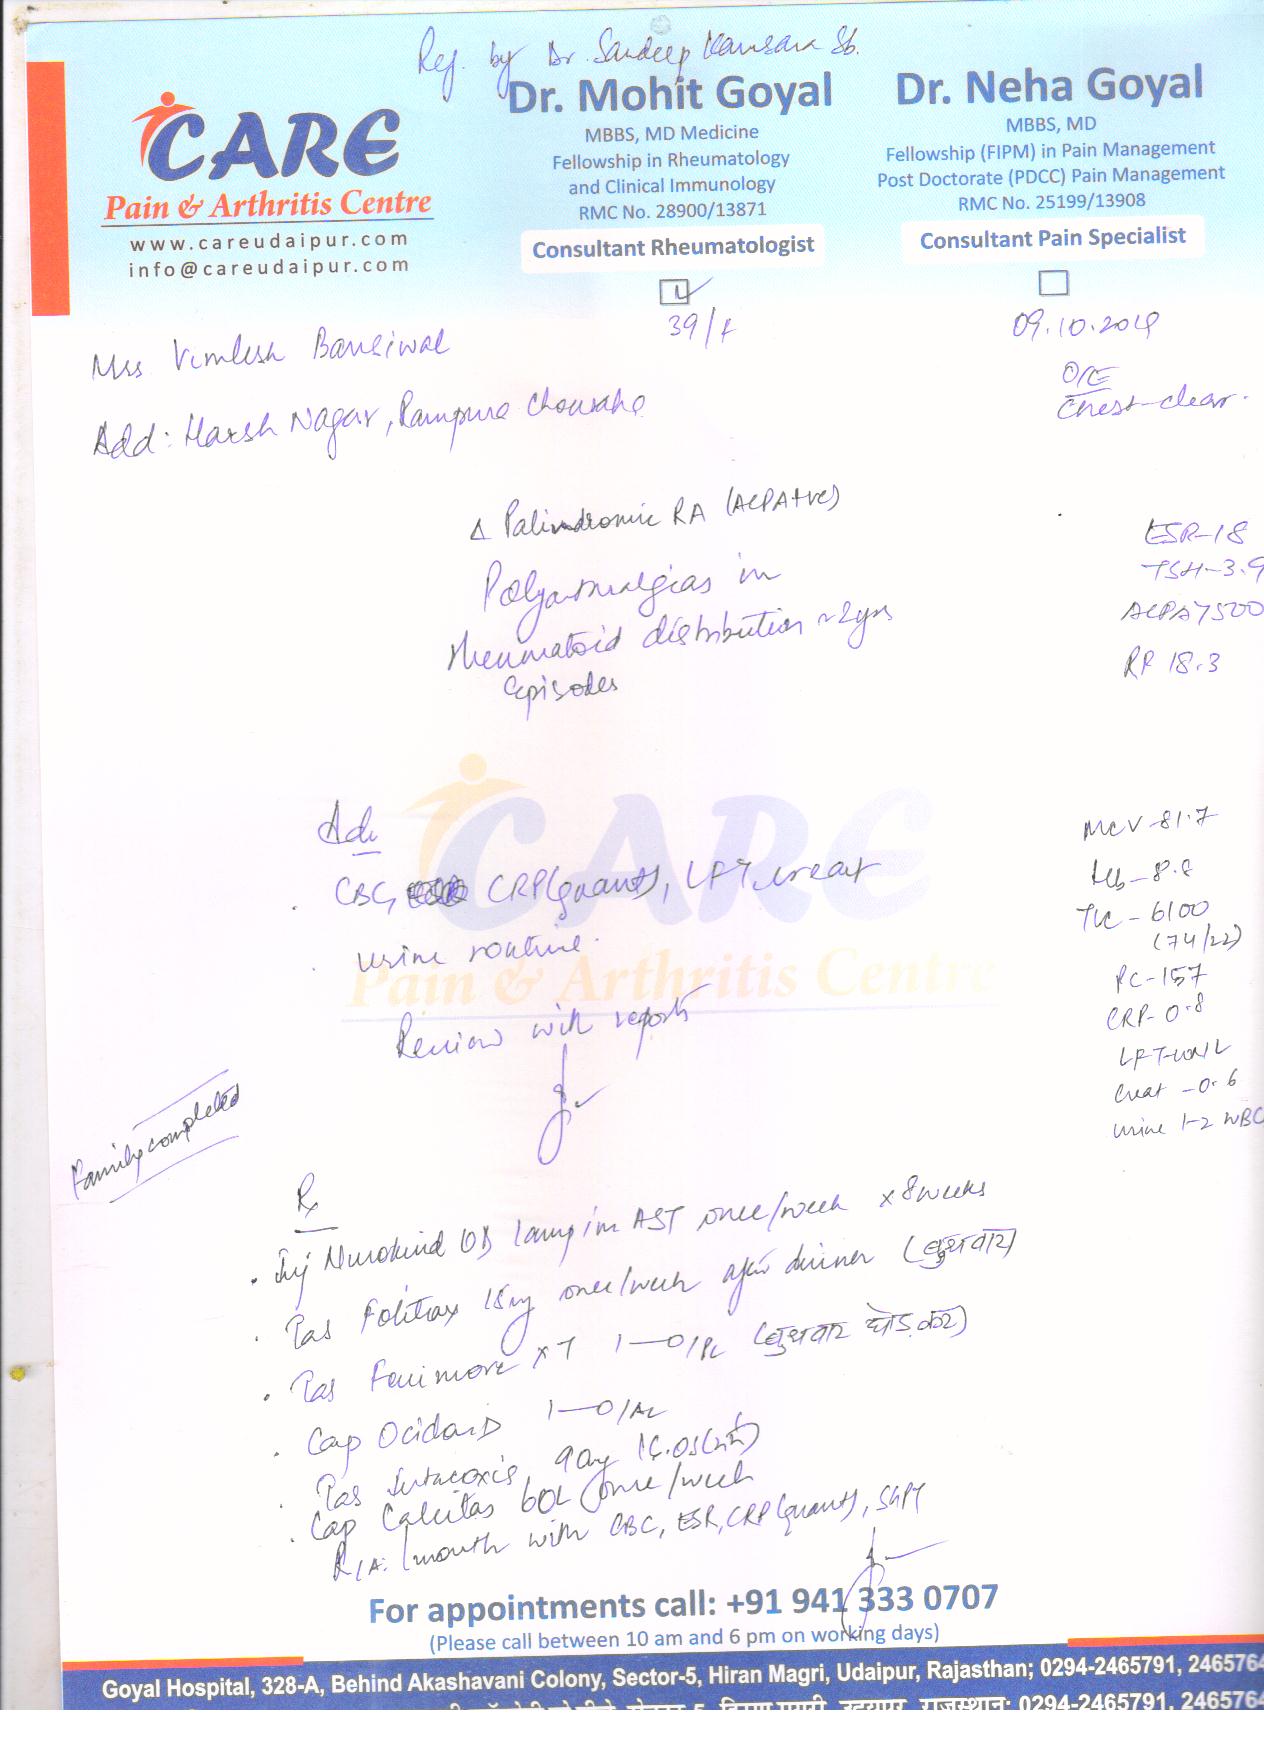 Ref. by Dr. Sandeep Kansara Sb.
CARE
Pain & Arthritis Centre
www.careudaipur.com
info@careudaipur.com
Dr. Mohit Goyal
MBBS, MD Medicine
Fellowship in Rheumatology
and Clinical Immunology
RMC No. 28900/13871
Consultant Rheumatologist
Dr. Neha Goyal
MBBS, MD
Fellowship (FIPM) in Pain Management
Post Doctorate (PDCC) Pain Management
RMC No. 25199/13908
Consultant Pain Specialist
Mrs Vimlesh Bansiwal 39/f 09.10.2019
Add: Harsh Nagar, Rampura Chouraha
O/E
Chest-clear.
Δ Palindromic RA (ACPA+ve)
Polyarthralgias in
rheumatoid distribution ~2yrs
episodes
ESR-18
TSH-3.9
ACPA>500
RF 18.3
Adv
CBC, CRP(quant), LFT, creat
urine routine.
Review with reports
MCV-81.7
Hb-8.8
TLC-6100
(74/22)
PC-157
CRP-0.8
LFT-WNL
Creat-0.6
Urine 1-2 WBC
CARE
Pain & Arthritis Centre
Family completed
Rx
. Inj Nurokind OD 1amp im AST once/week x 8 weeks
. Tab Folitrax 15mg once/week after dinner (बुधवार)
. Tab Ferimore XT 1—0/PL (बुधवार छोड़कर)
. Cap Ocid 1—0/AL
. Tab 90mg
. Cap Calcitas 60k once/week
R/A. 1 month with CBC, ESR, CRP(quant), SGPT
For appointments call: +91 941 333 0707
(Please call between 10 am and 6 pm on working days)
Goyal Hospital, 328-A, Behind Akashavani Colony, Sector-5, Hiran Magri, Udaipur, Rajasthan; 0294-2465791, 2465764
राजस्थान; 0294-2465791, 2465764